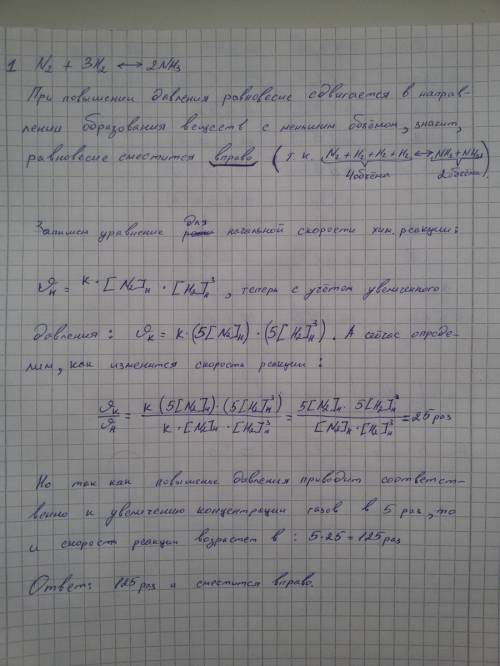 1 N₂ + 3H₂ ↔ 2NH₃
При повышении давления равновесие сдвигается в направ-
лении образования веществ с меньшим объёмом, значит,
равновесие сместится вправо (т.к. N₂ + H₂ + H₂ + H₂ ↔ NH₃ + NH₃).
4 объёма 2 объёма
для
Запишем уравнение начальной скорости хим. реакции:
𝜗н = k · [N₂]н · [H₂]н³, теперь с учётом увеличенного
давления: 𝜗к = k · (5[N₂]н) · (5[H₂]н³). А сейчас опреде-
лим, как изменится скорость реакции:
𝜗к/𝜗н = k (5[N₂]н) · (5[H₂]н³) / k · [N₂]н · [H₂]н³ = 5[N₂]н · 5[H₂]н³ / [N₂]н · [H₂]н³ = 25 раз
Но так как повышение давления приводит соответст-
венно к увеличению концентрации газов в 5 раз, то
и скорость реакции возрастет в: 5·25 = 125 раз
Ответ: 125 раз и сместится вправо.